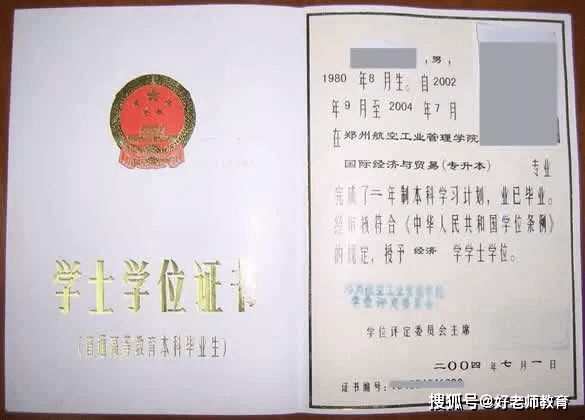 学士学位证书
(普通高等教育本科毕业生)
，男，
1980 年 8 月生。自 2002
年 9 月至 2004 年 7 月
在 郑州航空工业管理学院
国际经济与贸易(专升本) 专业
完成了二年制本科学习计划，业已毕业。
经审核符合《中华人民共和国学位条例》
的规定，授予 经济 学学士学位。
郑州航空工业管理学院
学位评定委员会
学位评定委员会主席
二〇〇四年 七月 一日
证书编号:
搜狐号@好老师教育